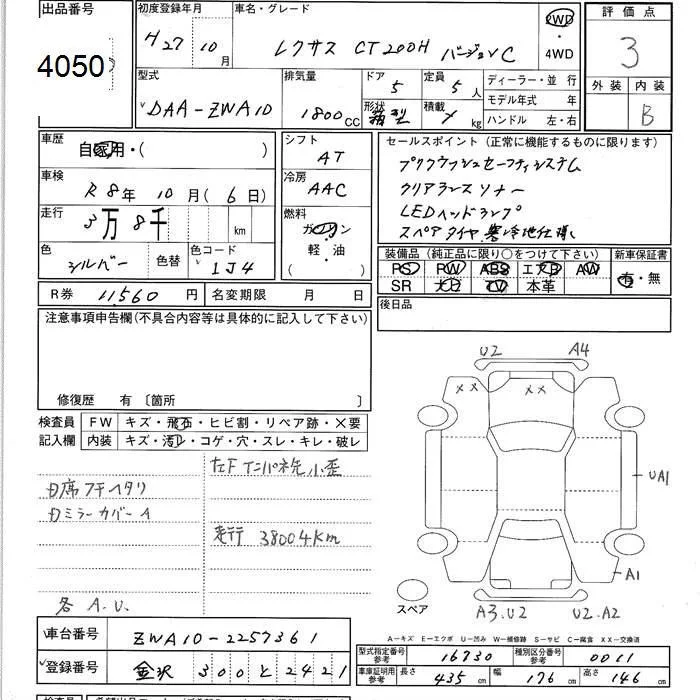 出品番号
4050
初度登録年月
H27 10月
車名・グレード
レクサス CT200H バージョンC
2WD
・
4WD
評価点
3
外装 内装
B
型式
DAA-ZWA10
排気量
1800cc
ドア
5
定員
5人
形状
箱型
積載
kg
ディーラー・並行
モデル年式 年
ハンドル 左・右
車歴
自家用・( )
シフト
AT
車検
R8年 10月(6日)
冷房
AAC
走行
3万8千 km
燃料
ガソリン
軽・油
( )
色
シルバー
色替
色コード
1J4
セールスポイント(正常に機能するものに限ります)
プリクラッシュセーフティシステム
クリアランスソナー
LEDヘッドランプ
スペアタイヤ.寒冷地仕様
装備品(純正品に限り○をつけて下さい)
PS PW ABS エアB AW
SR ナビ TV 本革
新車保証書
有・無
R券 11,560円
名変期限 月 日
後日品
注意事項申告欄(不具合内容等は具体的に記入して下さい)
修復歴 有〔箇所 〕
検査員
記入欄
FW キズ・飛石・ヒビ割・リペア跡・×要
内装 キズ・汚レ・コゲ・穴・スレ・キレ・破レ
左Fインパネ先小歪
D席フチヘタリ
DミラーカバーA
走行 38004km
各 A.U.
U2 A4
×× ××
UA1
A1
スペア
A3.U2 U2.A2
A―キズ E―エクボ U―凹み W―補修跡 S―サビ C―腐食 XX―交換済
車台番号 ZWA10-2257361
登録番号 金沢 300 と 2421
型式指定番号
参考
16730
種別区分番号
参考
0011
車庫証明用
参考
長さ 435cm 幅 176cm 高さ 146cm